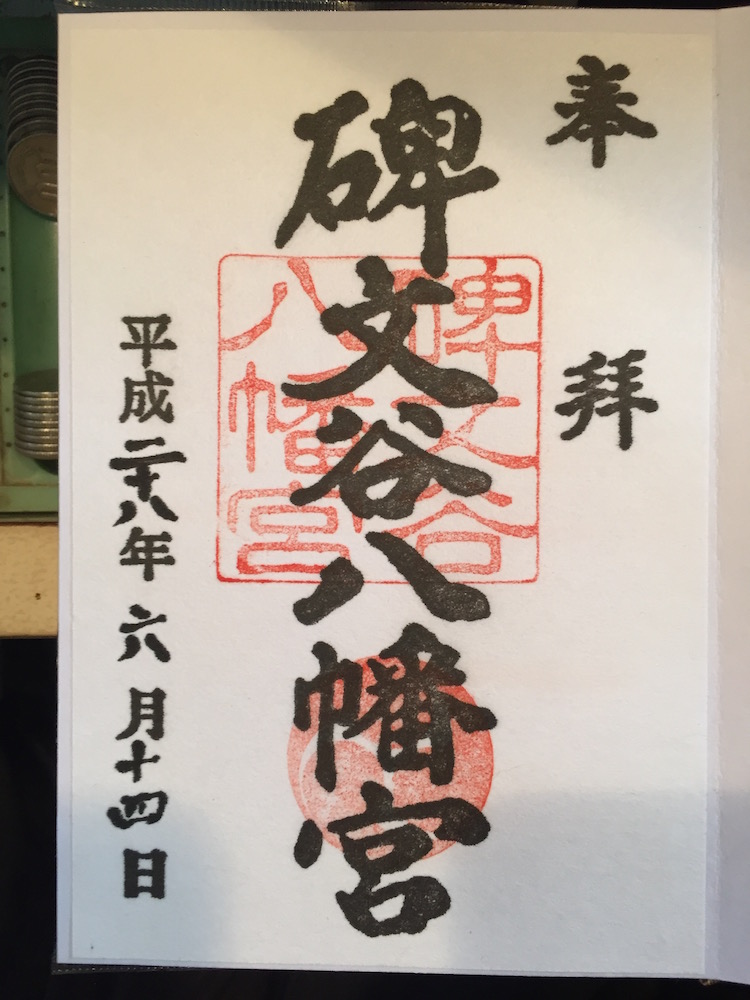 奉拝
碑文谷八幡宮
碑文谷
八幡宮
平成二十八年六月十四日